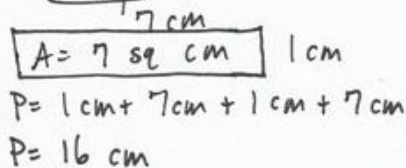 7 cm
A= 7 sq cm 1 cm
P= 1 cm+ 7cm + 1 cm + 7 cm
P= 16 cm